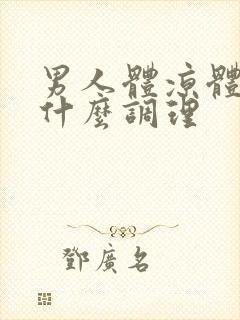 男人體涼體
什麼調理
鄧廣名